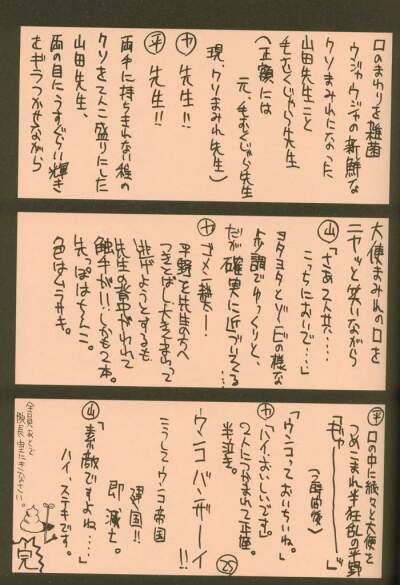 口のまわりを雑菌
ウジャウジャの新鮮な
クソまみれになった
山田先生こと
毛むくじゃら先生
(正確には
元、毛むくじゃら先生
現、クソまみれ先生)
ヤ 先生!!
平 先生!!
両手に持ちきれない程の
クソをてんこ盛りにした
山田先生、
両の目にうすぐらい輝き
をギラつかせながら
大便まみれの口を
ニヤ〜ッと笑いながら
山「さあ二人共‥‥
こっちにおいで‥‥」
ヨタヨタとゾンビの様な
歩調でゆっくりと、
だが確実に近づいてくる‥‥
ヤ ゴメン
平野を先生の方へ
つきとばし大きくすわって
逃げようとするも
先生の背中がわれて
触手が!!しかも2本。
先っぽはちんこ。
色はムラサキ。
平 口の中に続々と大便を
つめこまれ半狂乱の平野
「ギャーーーーー」
(2時間後)
「ウンコっておいちいね。」
ヤ「ハイ、おいしいです。」
2人につかまれて正座。
半泣き。
ウンコ バンザーイ!!
こうしてウンコ帝国
建国!!
即 滅亡。
山「素敵ですよね‥‥」
ハイ、ステキです。
全員あとで
隊長室にきなさい。
完